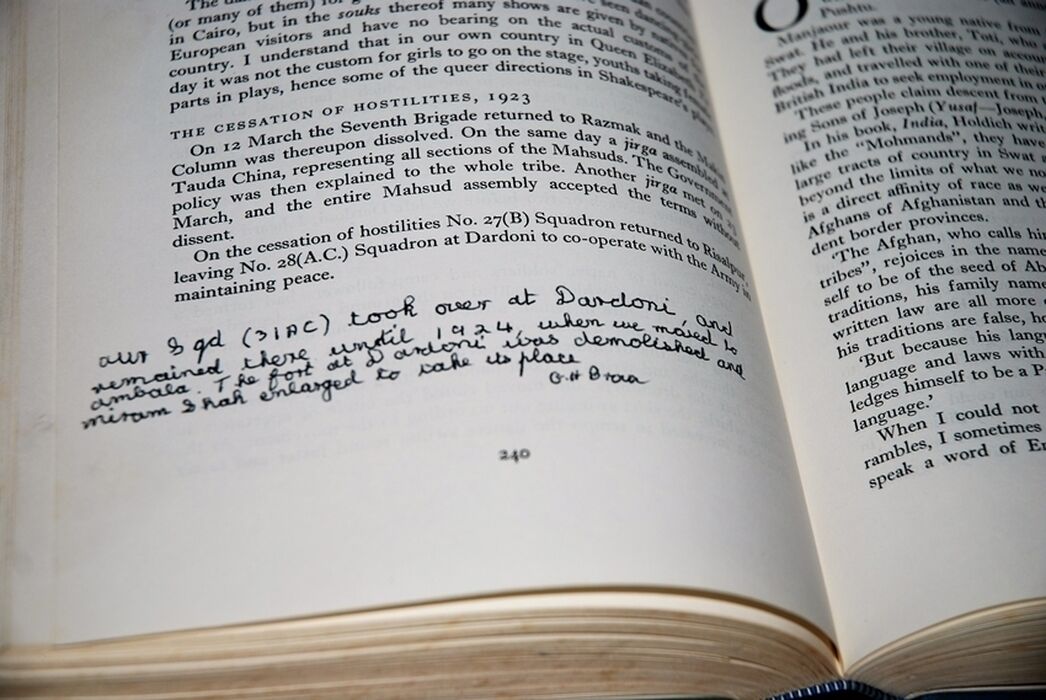 (or many of them)
in Cairo, but in the souks thereof many shows are given by
European visitors and have no bearing on the actual customs
country. I understand that in our own country in Queen Elizabeth's
day it was not the custom for girls to go on the stage, youths taking
parts in plays, hence some of the queer directions in Shakespeare's plays.
THE CESSATION OF HOSTILITIES, 1923
On 12 March the Seventh Brigade returned to Razmak and the
Column was thereupon dissolved. On the same day a jirga assembled
Tauda China, representing all sections of the Mahsuds. The Government
policy was then explained to the whole tribe. Another jirga met on
March, and the entire Mahsud assembly accepted the terms without
dissent.
On the cessation of hostilities No. 27(B) Squadron returned to Risalpur,
leaving No. 28(A.C.) Squadron at Dardoni to co-operate with the Army in
maintaining peace.
our Sqd (31AC) took over at Dardoni, and
remained there until 1924, when we moved to
ambala. The fort at Dardoni was demolished and
miram Shah enlarged to take its place
240
Pushtu.
Manjaour was a young native from
Swat. He and his brother, Toti, who
They had left their village on account
floods, and travelled with one of their
British India to seek employment in
These people claim descent from
ing Sons of Joseph (Yusaf—Joseph,
In his book, India, Holdich
like the "Mohmands", they have
large tracts of country in Swat
beyond the limits of what we
is a direct affinity of race as
Afghans of Afghanistan and
dent border provinces.
'The Afghan, who calls
tribes", rejoices in the name
self to be of the seed of
traditions, his family
written law are all more
his traditions are false,
'But because his
language and laws with
ledges himself to be a
language.'
When I could not
rambles, I sometimes
speak a word of